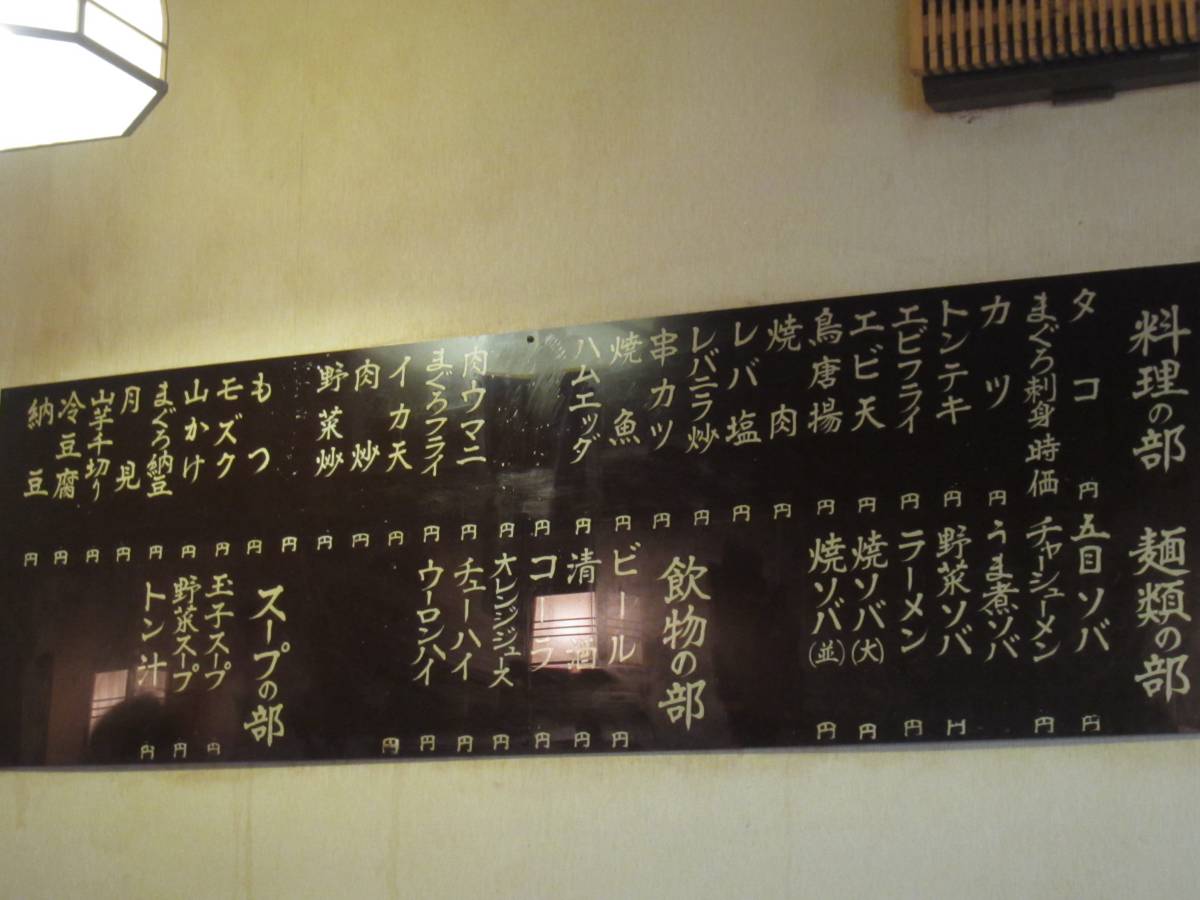 料理の部
タコ 円
まぐろ刺身 時価
カツ 円
トンテキ 円
エビフライ 円
エビ天 円
鳥唐揚 円
焼肉 円
レバ塩 円
レバニラ炒 円
串カツ 円
焼魚 円
ハムエッグ 円
円
円
肉ウマニ 円
まぐろフライ 円
イカ天 円
肉炒 円
野菜炒 円
円
もつ 円
モズク 円
山かけ 円
まぐろ納豆 円
月見 円
山芋千切り 円
冷豆腐 円
納豆 円
麺類の部
五目ソバ 円
チャーシューメン 円
うま煮ソバ
野菜ソバ 円
ラーメン 円
焼ソバ(大) 円
焼ソバ(並) 円
飲物の部
ビール 円
清酒 円
コーラ 円
オレンジジュース 円
チューハイ 円
ウーロンハイ 円
円
スープの部
玉子スープ 円
野菜スープ 円
トン汁 円